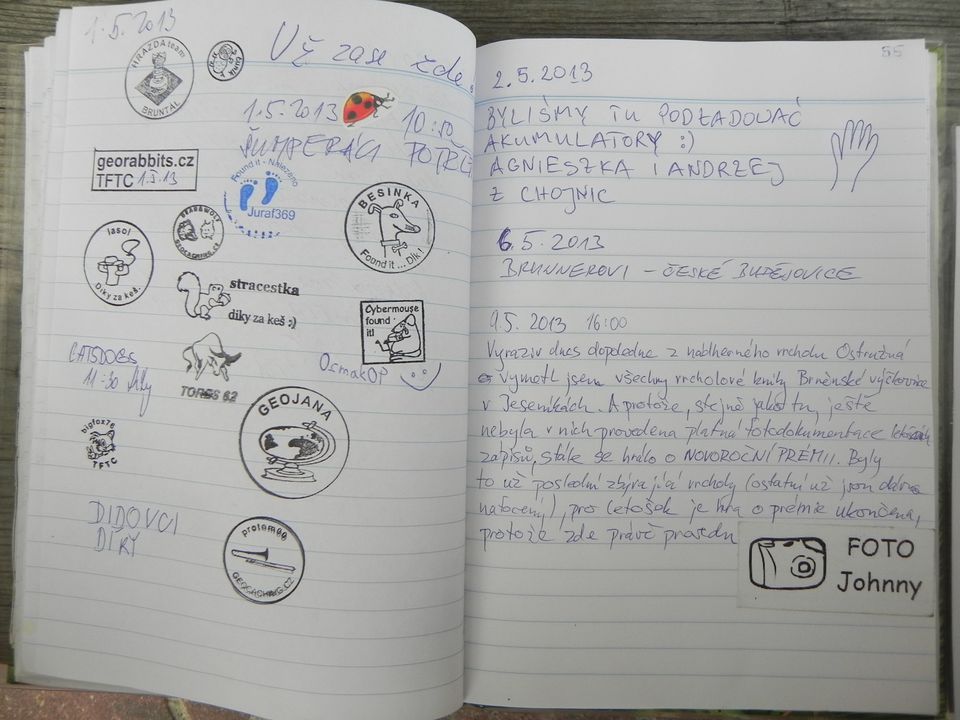 1.5.2013
HRAZDA team
BRUNTÁL
Už zase zde
1.5.2013 10:50
ŠUMPERÁCI
georabbits.cz
TFTC 1.5.13
Found it - Nalezeno
Juraf369
BESINKA
Found it ... Dík!
BEAR&WOLF
GEOCACHING.CZ
lasol
Díky za keš.
stracestka
díky za keš :)
Cybermouse
found
it!
OsmakOP
CATSDOGS
11:30
TOROS 62
GEOJANA
bigfox76
TFTC
DIDOVCI
DÍKY
protem00
GEOCACHING.CZ
55
2.5.2013
BYLIŚMY TU PODŁADOWAĆ
AKUMULATORY :)
AGNIESZKA I ANDRZEJ
Z CHOJNIC
6.5.2013
BRUNNEROVI - ČESKÉ BUDĚJOVICE
9.5. 2013 16:00
Vyraziv dnes dopoledne z nádherného vrcholu Ostružná
vymetl jsem všechny vrcholové knihy Brněnské výčkovnice
v Jeseníkách. A protože, stejně jako tu, ještě
nebyla v nich provedena platná fotodokumentace letošních
zápisů, stále se hrálo o NOVOROČNÍ PRÉMII. Byly
to už poslední zbývající vrcholy (ostatní už jsou dávno
nafoceny), pro letošek je hra o prémie ukončena,
protože zde právě
FOTO
Johnny